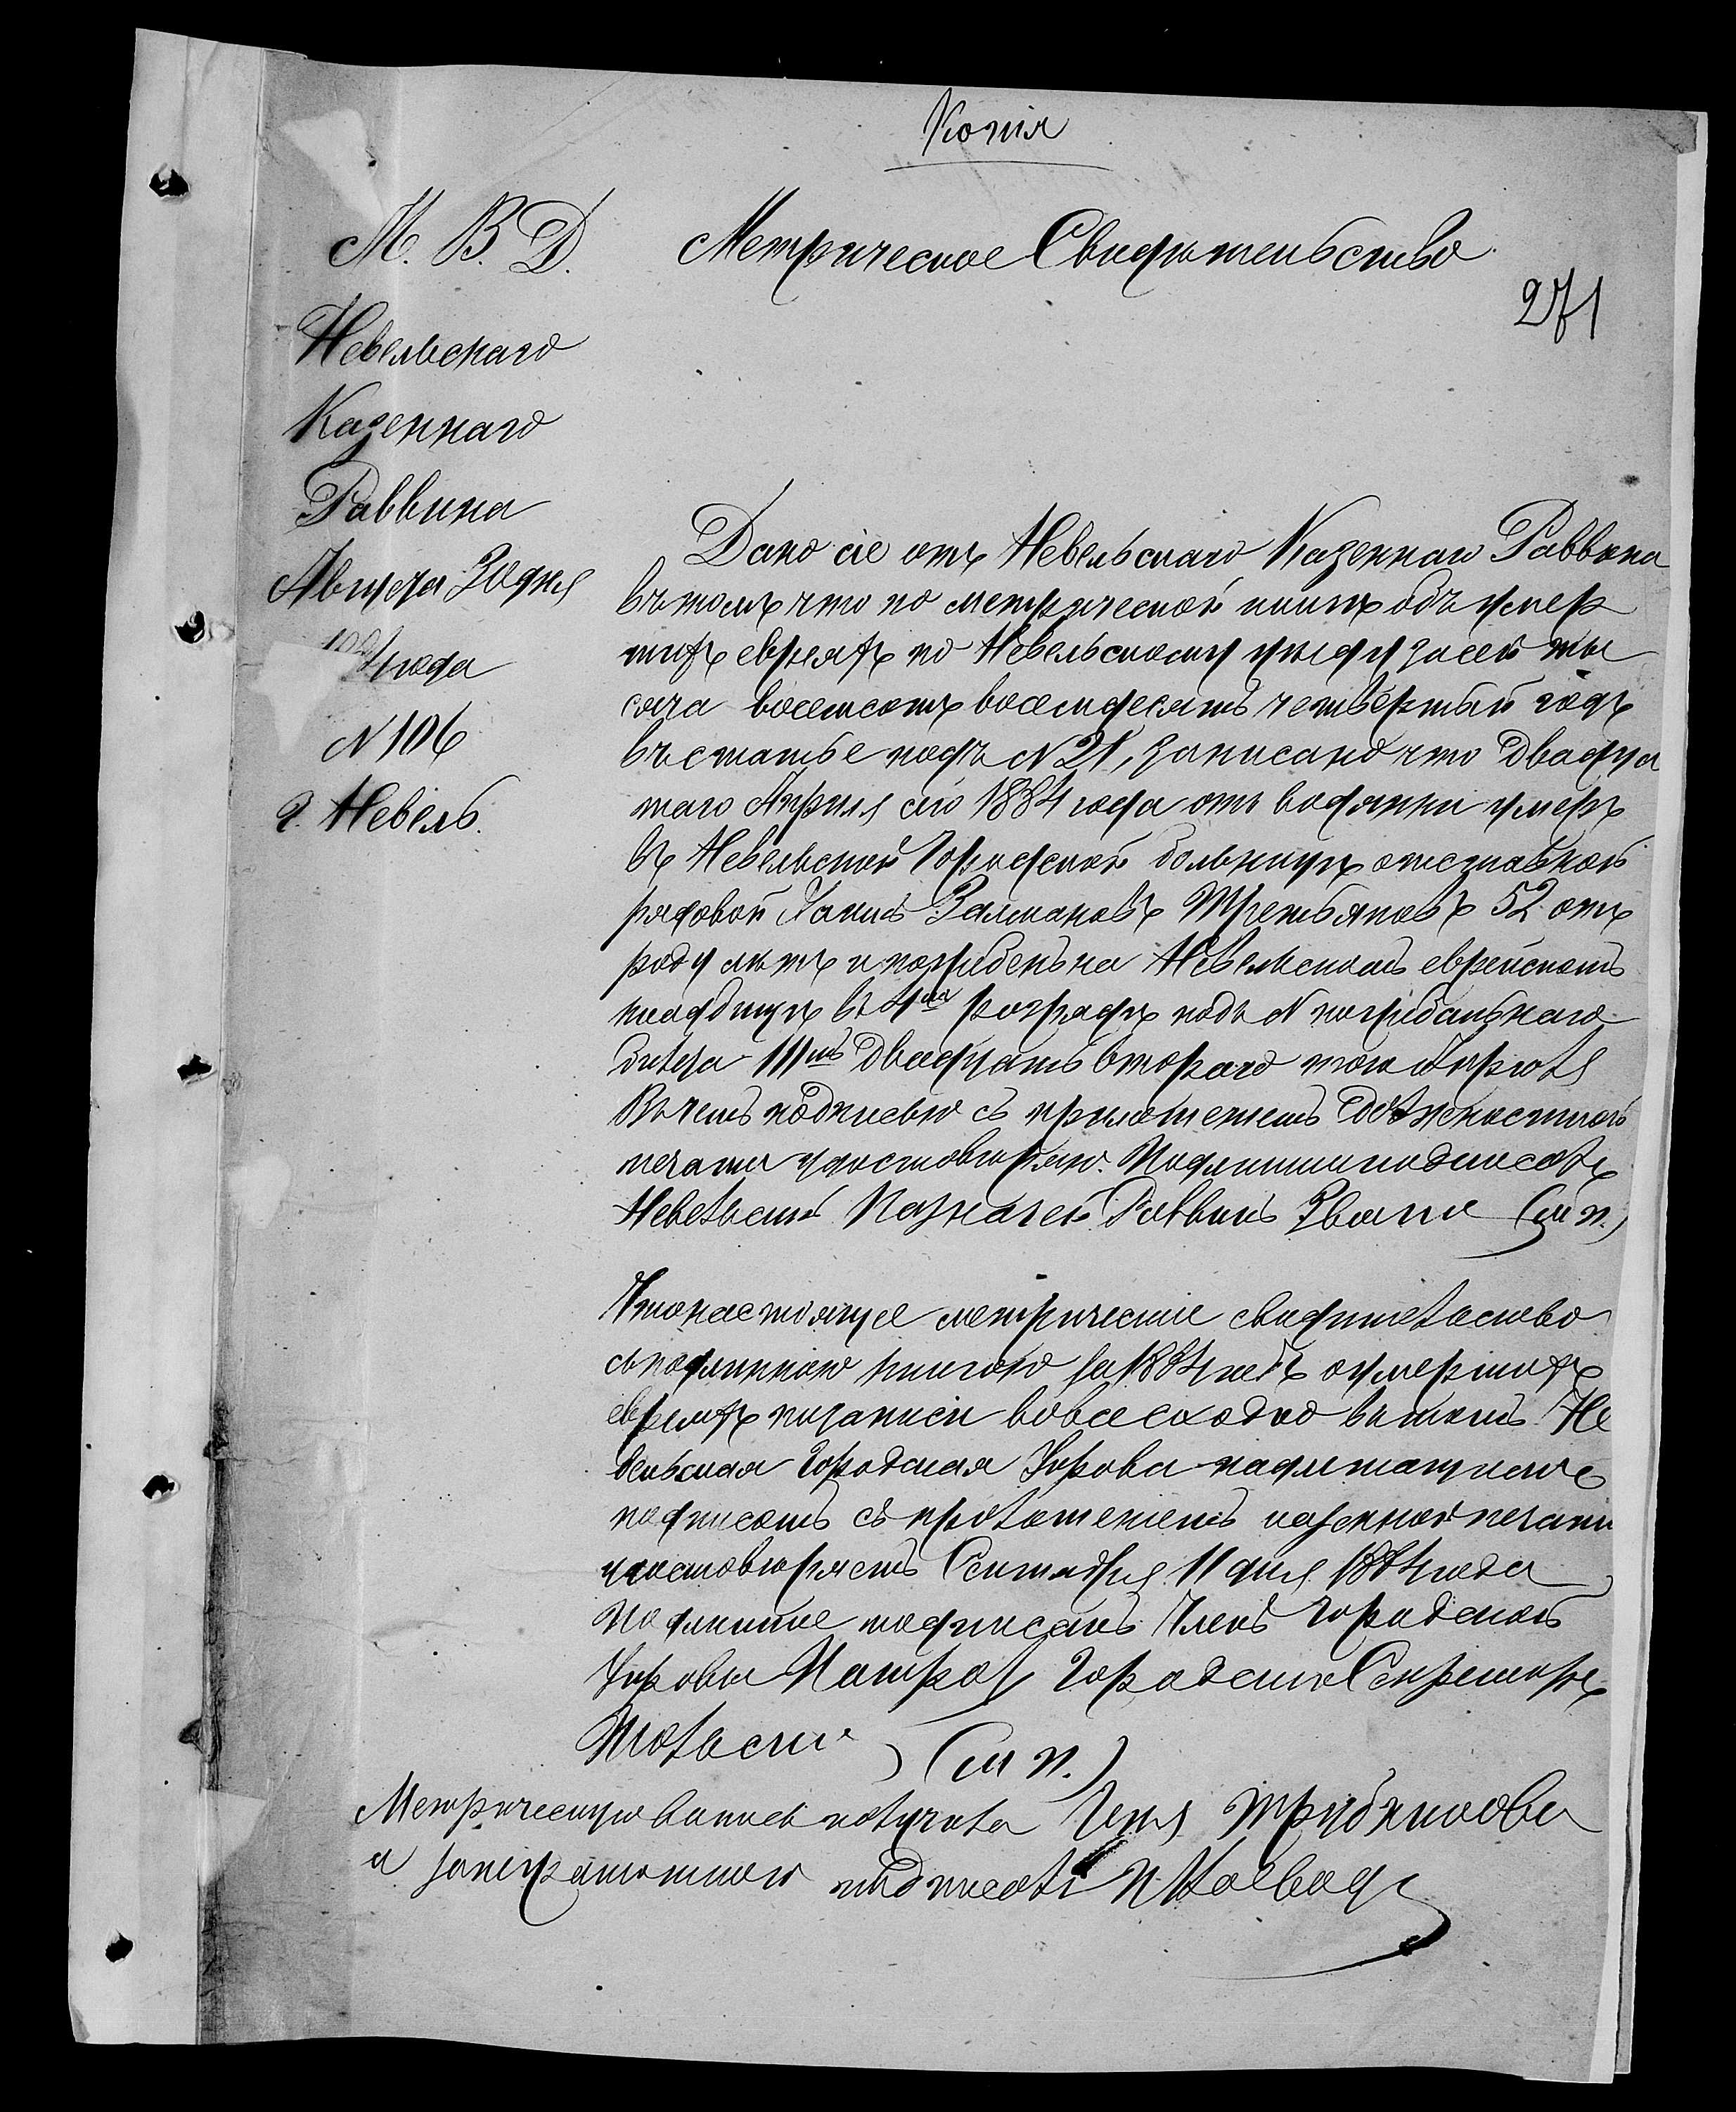 Копія
М. В. Д.
Метрическое Свидѣтельство
271
Невельскаго
Казеннаго
Раввина
Августа 30 дня
4 года
N 106
г. Невель.
Дано сіе отъ Невельскаго Казеннаго Раввина
въ томъ что по метрической книгѣ объ умер
шихъ евреяхъ по Невельскому уѣзду за сей ты
сяча восемсотъ восемдесятъ четвертый годъ
въ статье подъ N 21, записано что двадца
таго Апрѣля сего 1884 года отъ водянки умеръ
въ Невельской Городской больницѣ отставной
рядовой Залмановъ 52 отъ
роду лѣтъ и погребенъ на Невельскомъ еврейскомъ
кладбищѣ въ 4мъ розрядѣ подъ N погребальнаго
билета двадцать втораго того Апрѣля
Въ чемъ подписью съ приложеніемъ должностной
печати удостовѣряю. Подлинное подписалъ
Невельскій Раввинъ (м п.)
Что настоящее метрическое свидѣтельство
съ подлинною книгою за 1884 годъ о умершихъ
евреяхъ по записи во всем сходно въ томъ Не
вельская Городская Управа надлежащимъ
подписомъ съ приложеніемъ казенной печати
удостовѣряетъ Сентября 11 дня 1884 года
Подлинное подписалъ Членъ Городской
Управы Городской Секретарь
(м п.)
Метрическую выпись получила
а за неграмотную подписалъ